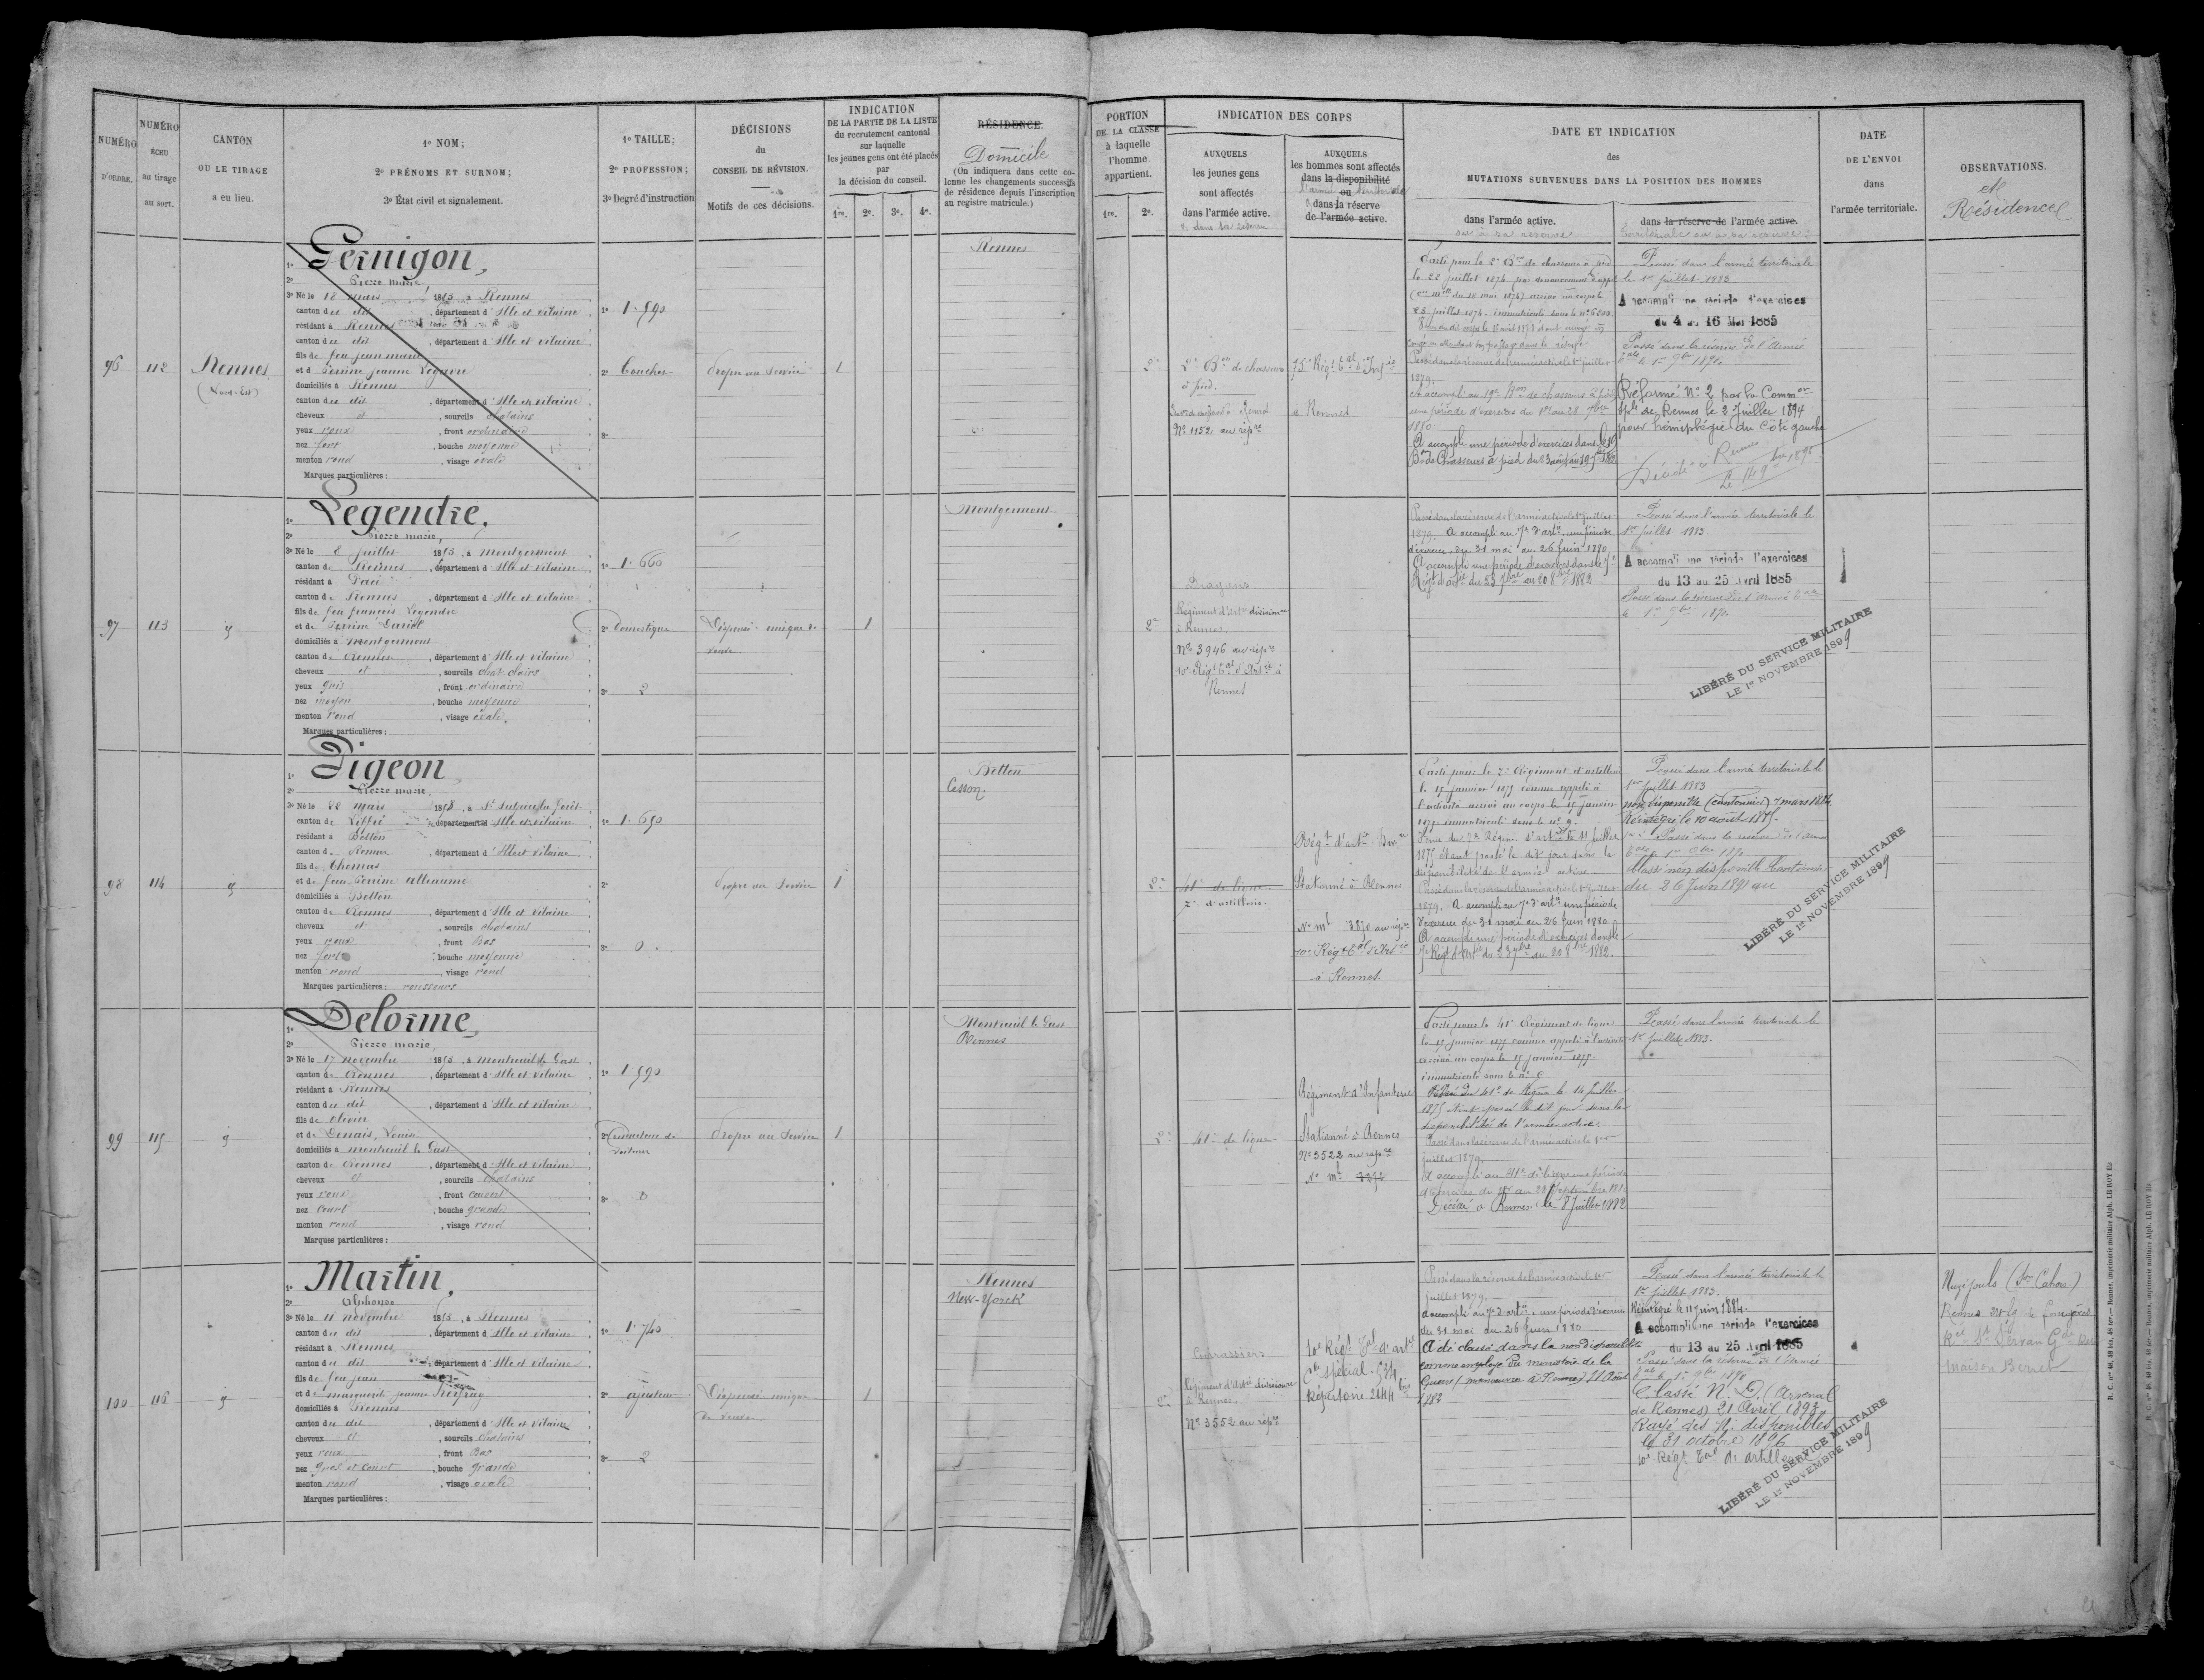 NUMÉRO
D'ORDRE.
NUMÉRO
ÉCHU
au tirage
au sort.
CANTON
OU LE TIRAGE
a eu lieu.
1º NOM;
2º PRÉNOMS ET SURNOM;
3º État civil et signalement.
1º TAILLE;
2º PROFESSION;
3º Degré d'instruction
DÉCISIONS
du
CONSEIL DE RÉVISION.
Motifs de ces décisions.
INDICATION
DE LA PARTIE DE LA LISTE
du recrutement cantonal
sur laquelle
les jeunes gens ont été placés
par
la décision du conseil.
1re. 2e. 3e. 4e.
RÉSIDENCE.
Domicile
(On indiquera dans cette co-
lonne les changements successifs
de résidence depuis l'inscription
au registre matricule.)
PORTION
DE LA CLASSE
à laquelle
l'homme
appartient.
1re. 2e.
INDICATION DES CORPS
AUXQUELS
les jeunes gens
sont affectés
dans l'armée active.
& dans sa réserve
AUXQUELS
les hommes sont affectés
dans la disponibilité
ou
dans la réserve
de l'armée active.
DATE ET INDICATION
des
MUTATIONS SURVENUES DANS LA POSITION DES HOMMES
dans l'armée active.
ou à sa réserve
dans la réserve de l'armée active.
territoriale ou à sa réserve
DATE
DE L'ENVOI
dans
l'armée territoriale.
OBSERVATIONS.
et
Résidence
96
112
Rennes
(Nord-Est)
1º Pernigon,
2º Pierre marie,
3º Né le 18 mars 1853, à Rennes
canton du dit, département d'Ille et vilaine
résidant à Rennes
canton du dit, département d'Ille et vilaine
fils de feu jean marie
et d Perrine jeanne
domiciliés à Rennes
canton du dit, département d'Ille et vilaine
cheveux et, sourcils chatains
yeux roux, front ordinaire
nez fort, bouche moyenne
menton rond, visage ovale
Marques particulières :
1º 1.590
2º Boucher
3º
Propre au Service
1
Rennes
2e
2e Bon de chasseurs
à pied.
Nº 1152 au répre
75e Régt Tal d'Infie
à Rennes
Parti pour le 2e Bon de chasseurs à pied
le 22 juillet 1874
Passé dans la réserve de l'armée active le 1er juillet
1879.
A accompli au 19e Bon de chasseurs à pied
une période d'exercices du 1er au 28 7bre
1880.
A accompli une période d'exercices dans le 19
Bon de Chasseurs à pied
Passé dans l'armée territoriale
le 1er juillet 1883
A accompli une période d'exercices
du 4 au 16 Mai 1885
Passé dans la réserve de l'Armée
Tale le 1er 9bre 1890.
Réformé Nº 2 par la Common
Sple de Rennes le 2 Juillet 1894
pour hémiplégie du côté gauche
Décédé à Rennes
97
113
1º Legendre,
2º Pierre marie,
3º Né le 8 juillet 1853, à Montgermont
canton de Rennes, département d'Ille et vilaine
résidant à Pacé
canton de Rennes, département d'Ille et vilaine
fils de feu françois Legendre
et de Perrine
domiciliés à Montgermont
canton de Rennes, département d'Ille et vilaine
cheveux et, sourcils chat. clairs
yeux gris, front ordinaire
nez moyen, bouche moyenne
menton rond, visage ovale,
Marques particulières :
1º 1.660
2º Domestique
3º 2
Dispensé unique de
veuve.
1
Montgermont
2e
Dragons
Régiment d'Artie divisionre
à Rennes.
Nº 3946 au répre
10e Régt Tal d'Artie à
Rennes
Passé dans la réserve de l'armée active le 1er juillet
1879. A accompli au 7e d'artie une période
d'exercice du 31 mai au 26 Juin 1880
A accompli une période d'exercices dans le 7e
Régt d'artie du 23 7bre au 20 8bre 1882
Passé dans l'armée territoriale le
1er juillet 1883.
A accompli une période d'exercices
du 13 au 25 Avril 1885
Passé dans la réserve de l'Armée Tale
le 1er 9bre 1890
LIBÉRÉ DU SERVICE MILITAIRE
LE 1er NOVEMBRE 1899
98
114
1º Pigeon
2º Pierre marie,
3º Né le 22 mars 1853, à St Sulpice la forêt
canton de Liffré, département d'Ille et vilaine
résidant à Betton
canton de Rennes, département d'Ille et vilaine
fils de Thomas
et de feue Perrine alleaume
domiciliés à Betton
canton de Rennes, département d'Ille et vilaine
cheveux et, sourcils chatains
yeux roux, front Bas
nez fort, bouche moyenne
menton rond, visage rond
Marques particulières : rousseurs
1º 1.650
2º
3º 0.
Propre au Service
1
Betton
Cesson.
2e
41e de ligne.
7e d'artillerie.
Régt d'artie Divre
Stationné à Rennes
Nº ml 3870 au répre
10e Régt Tal d'Artie
à Rennes
Parti pour le 7e Régiment d'artillerie
le 15 janvier 1875 comme appelé à
l'activité arrivé au corps le 15 janvier
1875 immatriculé sous le nº 9.
1875 étant passé le dit jour dans la
disponibilité de l'armée active
Passé dans la réserve de l'armée active le 1er juillet
1879. A accompli au 7e d'artie une période
d'exercice du 31 mai au 26 Juin 1880
A accompli une période d'exercices dans le
7e Régt d'Artie du 23 7bre au 20 8bre 1882.
Passé dans l'armée territoriale le
1er Juillet 1883
non disponible (cantonnier) 7 mars 1884.
Réintégré le 10 août 1885.
Passé dans la réserve de l'armée
Classé non disponible Cantonnier
du 26 Juin 1891 au
LIBÉRÉ DU SERVICE MILITAIRE
LE 1er NOVEMBRE 1899
99
115
1º Delorme,
2º Pierre marie,
3º Né le 17 novembre 1853, à Montreuil le Gast
canton de Rennes, département d'Ille et vilaine
résidant à Rennes
canton du dit, département d'Ille et vilaine
fils de olivier
et de Denais, Louise
domiciliés à montreuil le Gast
canton de Rennes, département d'Ille et vilaine
cheveux et, sourcils chatains
yeux roux, front couvert
nez court, bouche grande
menton rond, visage rond
Marques particulières :
1º 1.590
2º Conducteur de
voitures
3º 0
Propre au Service
1
Montreuil le Gast
Rennes
2e
41e de ligne
Régiment d'Infanterie
Stationné à Rennes
Nº 3522 au répre
Nº ml
Parti pour le 41e Régiment de ligne
le 15 janvier 1875 comme appelé à l'activité
arrivé au corps le 15 janvier 1875.
immatriculé sous le nº
du 41e de ligne le 14 juillet
1875 étant passé le dit jour dans la
disponibilité de l'armée active.
Passé dans la réserve de l'armée active le 1er
juillet 1879.
A accompli au 41e de ligne une période
d'exercices du 1er au 28 Septembre
Décédé à Rennes le 8 Juillet 1882
Passé dans l'armée territoriale le
1er Juillet 1883.
100
116
1º Martin,
2º Alphonse
3º Né le 11 novembre 1853, à Rennes
canton du dit, département d'Ille et vilaine
résidant à Rennes
canton du dit, département d'Ille et vilaine
fils de feu jean
et de marguerite jeanne
domiciliés à Rennes
canton du dit, département d'Ille et vilaine
cheveux et, sourcils chatains
yeux roux, front Bas
nez gros et court, bouche grande
menton rond, visage ovale
Marques particulières :
1º 1.740
2º ajusteur
3º 2
Dispensé unique
de veuve.
1
Rennes
New-Yorck
2e
Cuirassiers
Régiment d'Artie divisionre
à Rennes.
Nº 3552 au répre
10e Régt Tal d'artie
Cle spécial. 574
Répertoire 2444 bis
Passé dans la réserve de l'armée active le 1er
juillet 1879.
A accompli au 7e d'artie une période d'exercice
du 31 mai au 26 Juin 1880
A été classé dans la non disponibilité
comme employé du ministère de la
Guerre
Passé dans l'armée territoriale le
1er juillet 1883.
Réintégré le 11 juin 1884.
A accompli une période d'exercices
du 13 au 25 Avril 1885
Passé dans la réserve de l'Armée
Tale le 1er 9bre 1890
Classé N. D. (Arsenal
de Rennes) 21 Avril 1893.
Rayé des N. disponibles
le 31 octobre 1896
10e Régt Tal d'artillerie
LIBÉRÉ DU SERVICE MILITAIRE
LE 1er NOVEMBRE 1899
Rennes
maison
R. C. nos 48, 48 bis, 48 ter.— Rennes, imprimerie militaire Alph. LE ROY fils
R. C. nos 48, 48 bis, 48 ter.— Rennes, imprimerie militaire Alph. LE ROY fils